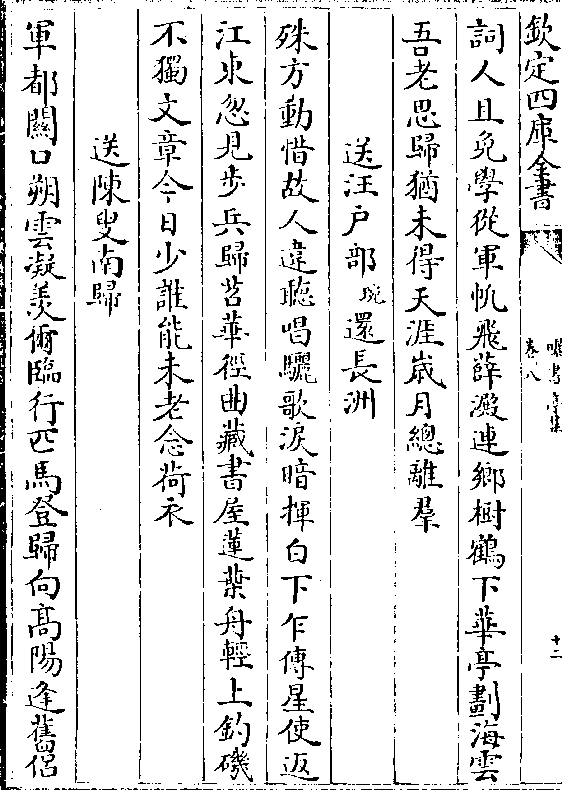 欽定四庫全書
曝書亭集
卷八
十二
詞人且免學從軍帆飛薛澱連鄉樹鶴下華亭劃海雲
吾老思歸猶未得天涯歲月總離羣
送汪戶部琬還長洲
殊方動惜故人違聽唱驪歌淚暗揮白下乍傳星使返
江東忽見步兵歸苕華徑曲藏書屋蓮葉舟輕上釣磯
不獨文章今日少誰能未老念荷衣
送陳叟南歸
軍都關口朔雲凝羨爾臨行匹馬登歸向高陽逢舊侶